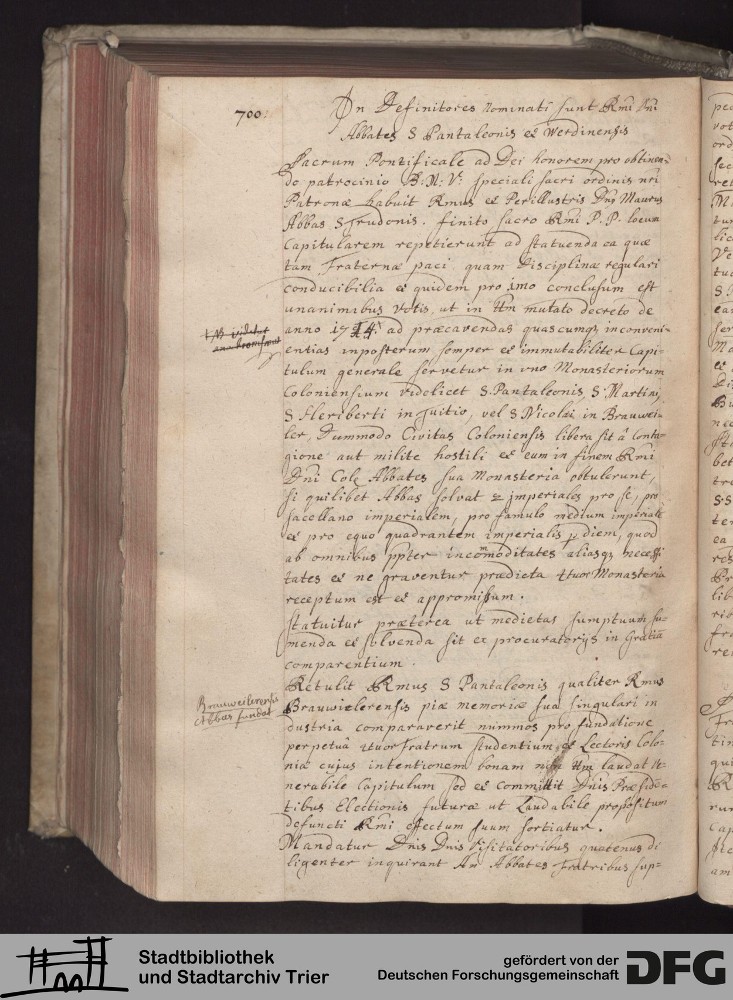 700.
In Definitores nominati sunt Rmi Dni
Abbates S Pantaleonis et Werdinensis
Sacrum Pontificale ad Dei honorem pro obtinen=
do patrocinio B: M: V: speciali sacri ordinis nri
Patronæ habuit Rmus et Perillustris Dnus Maurus
Abbas S Trudonis. finito sacro Rmi P. P. locum
Capitularem repetierunt ad statuenda ea quæ
tam Fraternæ paci quam Disciplinæ regulari
conducibilia et quidem pro imo conclusum est
unanimibus votis, ut in mutato decreto de
anno 1714 ad præcavendas quascumq inconveni-
entias inposterum semper et immutabiliter Capi-
tulum generale servetur in uno Monasteriorum
Coloniensium videlicet S. Pantaleonis, S. Martini,
S Heriberti in Tuitio, vel S Nicolai in Brauwei-
ler, Dummodo Civitas Coloniensis libera sit â conta-
gione aut milite hostili et eum in finem Rmi
Dni Abbates sua Monasteria obtulerunt,
si quilibet Abbas solvat 2 imperiales pro se, pro
sacellano imperialem, pro famulo medium imperialē
et pro equo quadrantem imperialis p diem, quod
ab omnibus ppter incommoditates aliasq necessi
tates et ne graventur prædicta 4tuor Monasteria
receptum est et appromissum.
Statuitur præterea ut medietas sumptuum su=
menda et solvenda sit ex procuratorijs in Gratiā
comparentium.
Retulit Rmus S Pantaleonis qualiter Rmus
Brauwielerensis piæ memoriæ sua singulari in
dustria comparaverit nummos pro fundatione
perpetuâ 4tuor Fratrum studentium, et Lectoris Colo-
niæ cujus intentionem bonam laudat Ve
nerabile Capitulum sed et committit Dnis Præsiden-
tibus Electionis futuræ ut Laudabile propositum
defuncti Rmi effectum suum sortiatur.
Mandatur Dnis Dnis Visitatoribus quatenus di
ligenter inquirant An Abbates Fratribus sup=
NB videtur
Brauweilerensis
Abbas fundat
Stadtbibliothek
und Stadtarchiv Trier
gefördert von der
Deutschen Forschungsgemeinschaft
DFG